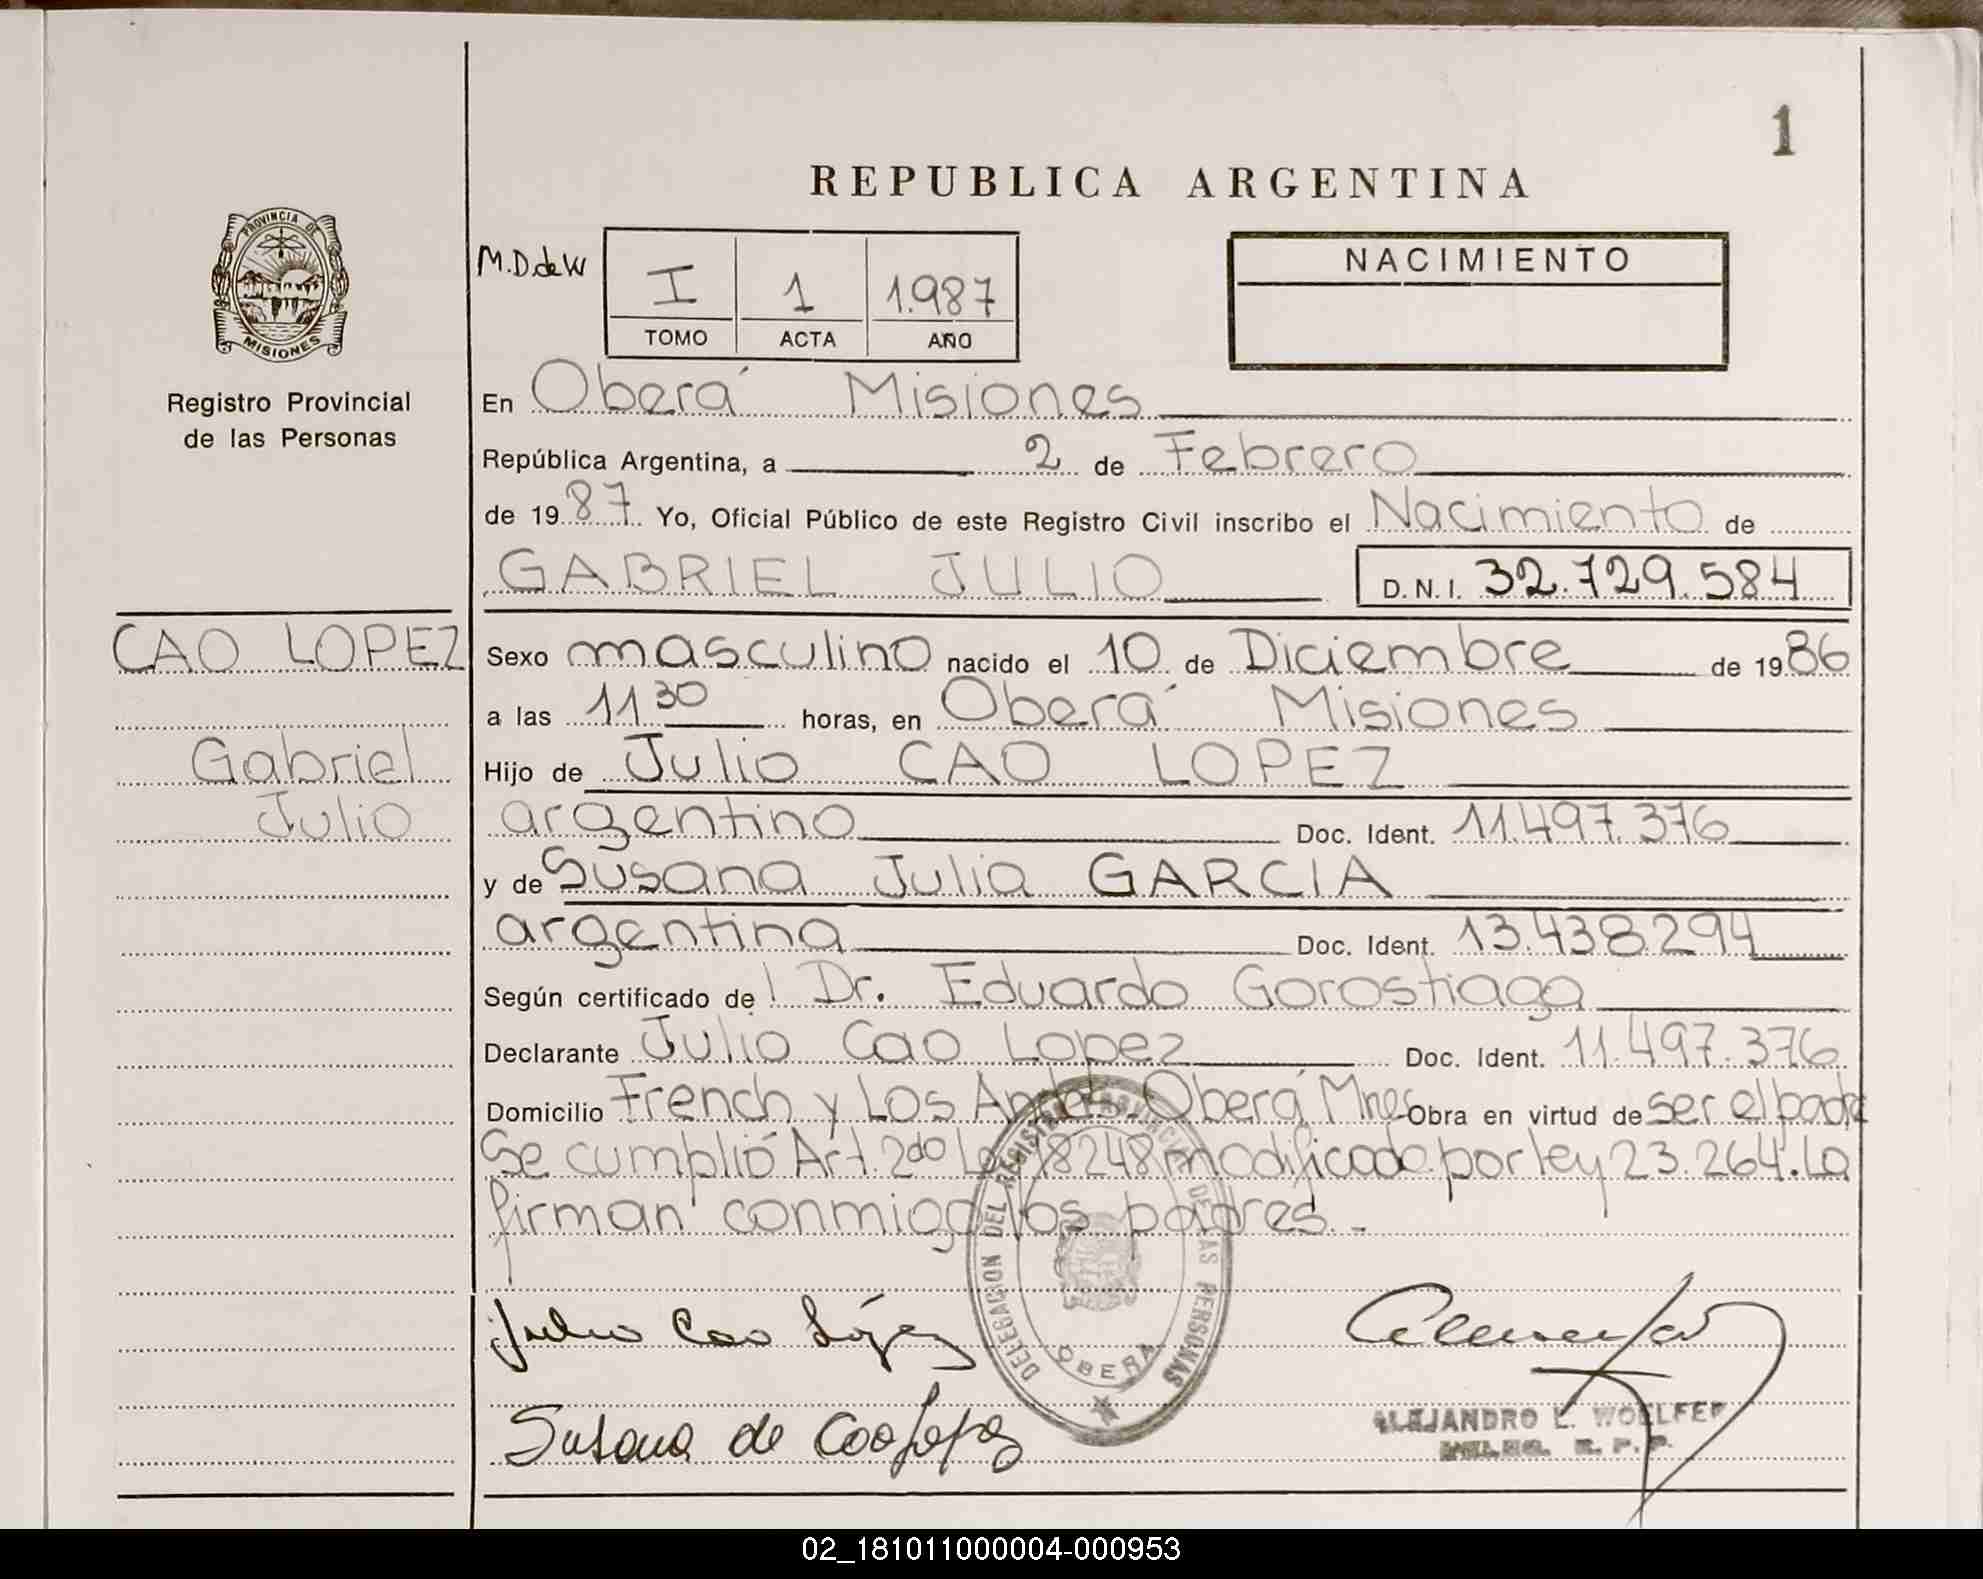 1
REPUBLICA ARGENTINA
PROVINCIA DE
MISIONES
Registro Provincial
de las Personas
M.D.de W
I 1 1.987
TOMO ACTA AÑO
NACIMIENTO
En Oberá Misiones
República Argentina, a 2 de Febrero
de 1987 Yo, Oficial Público de este Registro Civil inscribo el Nacimiento de
GABRIEL JULIO D.N.I. 32.729.584
CAO LOPEZ
Gabriel
Julio
Sexo masculino nacido el 10 de Diciembre de 1986
a las 11 30 horas, en Oberá Misiones
Hijo de Julio CAO LOPEZ
argentino Doc. Ident. 11.497.376
y de Susana Julia GARCIA
argentina Doc. Ident. 13.438.294
Según certificado del Dr. Eduardo Gorostiaga
Declarante Julio Cao Lopez Doc. Ident. 11.497.376
Domicilio French y Los Andes Oberá Mnes Obra en virtud de ser el padre
Se cumplió Art. 2do Ley 18248 modificado por ley 23.264. La
firman conmigo los padres.-
DELEGACION DEL REGISTRO PROVINCIAL DE LAS PERSONAS
OBERA
Julio Cao López
Susana de Cao Lopez
ALEJANDRO L. WOELFER
DELEG. R. P. P.
02_181011000004-000953